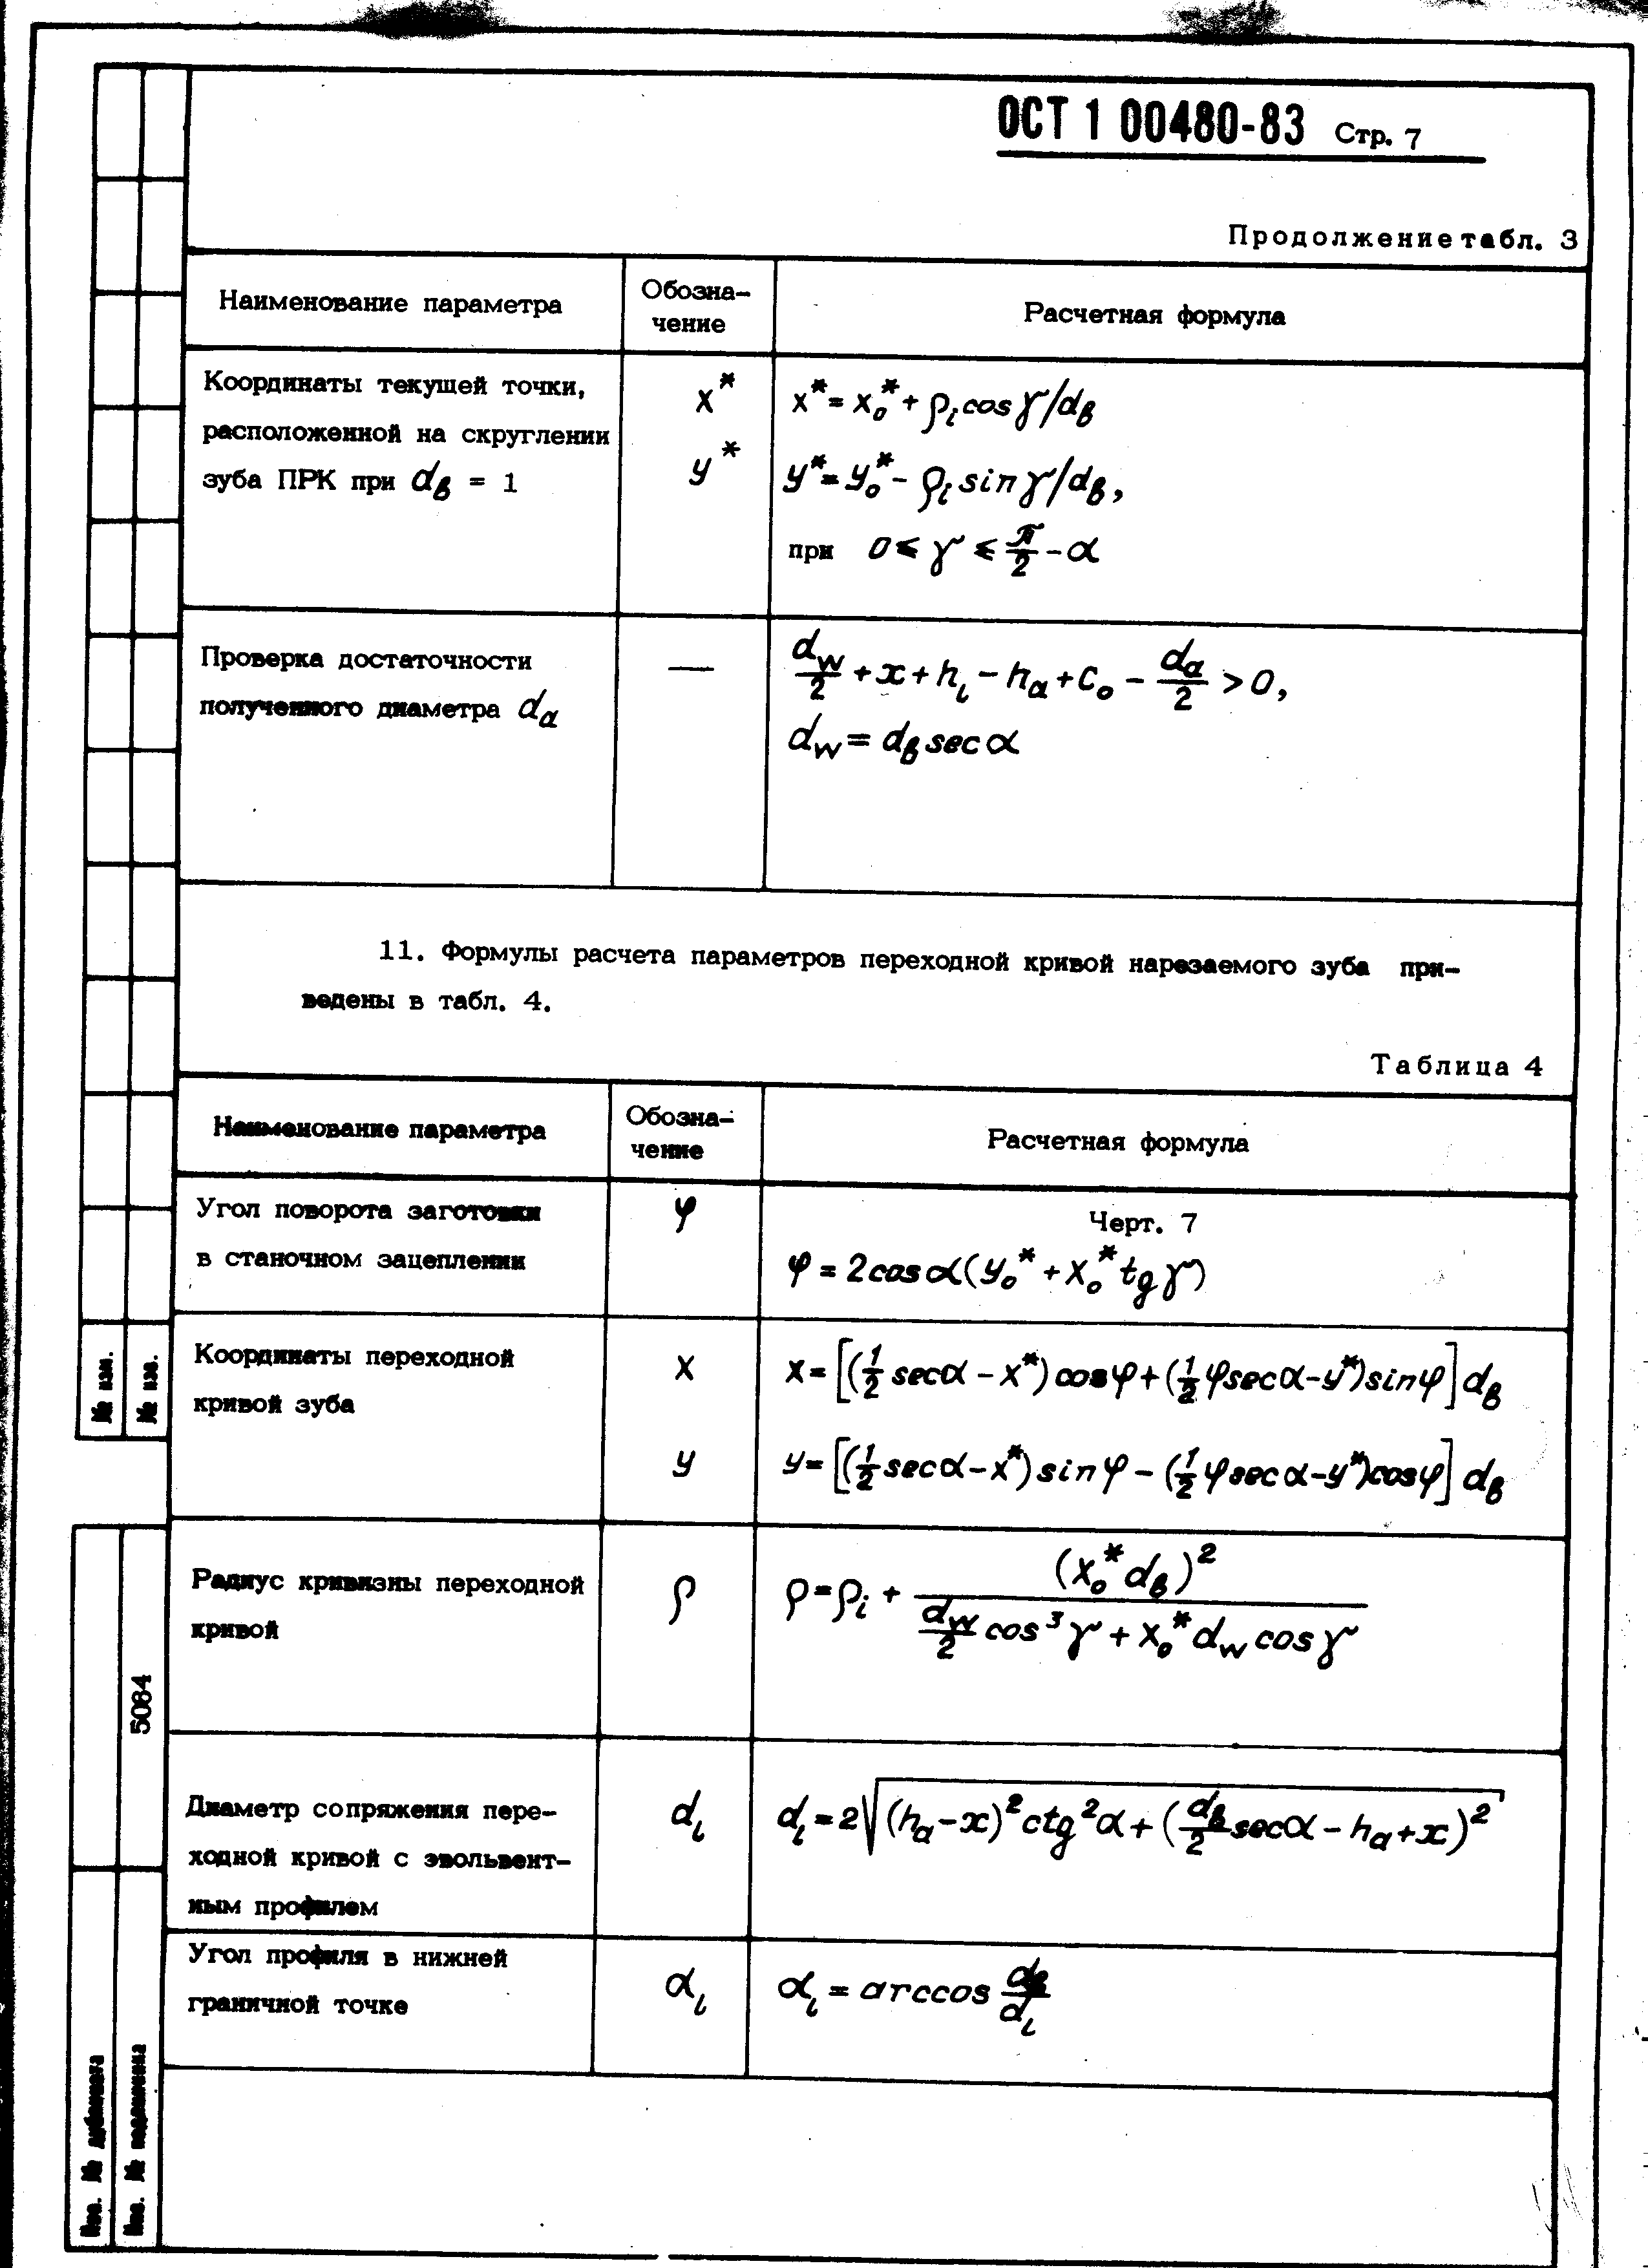 ОСТ 1 00480-83 Стр. 7
Продолжение табл. 3
Наименование параметра
Обозна-
чение
Расчетная формула
Координаты текущей точки,
расположенной на скруглении
зуба ПРК при d_в = 1
x*
y*
x* = x₀* + ρ_i cos γ/d_в
y* = y₀* - ρ_i sin γ/d_в,
при 0 ≤ γ ≤ π/2 - α
Проверка достаточности
полученного диаметра d_a
—
d_w/2 + x + h_l - h_a + c₀ - d_a/2 > 0,
d_w = d_в sec α
11. Формулы расчета параметров переходной кривой нарезаемого зуба при-
ведены в табл. 4.
Таблица 4
Наименование параметра
Обозна-
чение
Расчетная формула
Угол поворота заготовки
в станочном зацеплении
φ
Черт. 7
φ = 2cos α(y₀* + x₀* tg γ)
Координаты переходной
кривой зуба
x
y
x = [(1/2 sec α - x*) cos φ + (1/2 φ sec α - y*) sin φ] d_в
y = [(1/2 sec α - x*) sin φ - (1/2 φ sec α - y*) cos φ] d_в
Радиус кривизны переходной
кривой
ρ
ρ = ρ_i + (x₀* d_в)² / (d_w/2 cos³ γ + x₀* d_w cos γ)
Диаметр сопряжения пере-
ходной кривой с эвольвент-
ным профилем
d_l
d_l = 2√((h_a - x)² ctg² α + (d_в/2 sec α - h_a + x)²)
Угол профиля в нижней
граничной точке
α_l
α_l = arccos d_в/d_l
№ изм.
№ изв.
5084
Инв. № дубликата
Инв. № подлинника